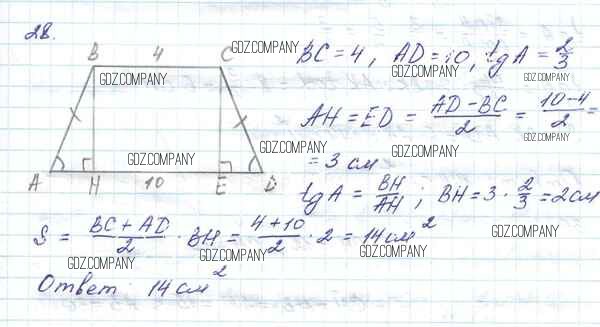 28.
B 4 C
GDZ.COMPANY
BC = 4, AD = 10, tg A = 2/3
GDZ.COMPANY GDZ.COMPANY GDZ.COMPANY
AH = ED = (AD − BC)/2 = (10 − 4)/2 =
GDZ.COMPANY
GDZ.COMPANY GDZ.COMPANY
= 3 см
A H 10 E D
tg A = BH/AH ; BH = 3 · 2/3 = 2 см
GDZ.COMPANY
S = (BC + AD)/2 · BH = (4 + 10)/2 · 2 = 14 см²
GDZ.COMPANY
GDZ.COMPANY GDZ.COMPANY GDZ.COMPANY
Ответ: 14 см²